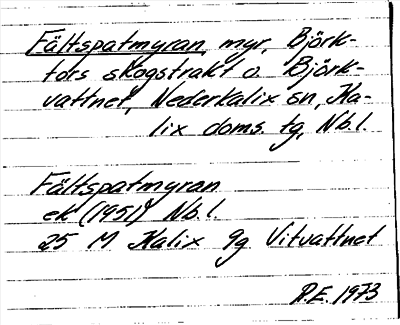 Fältspatmyran, myr, Björk-
fors skogstrakt o. Björk-
vattnet, Nederkalix sn, Ka-
lix doms. tg, Nb.l.
Fältspatmyran
ek (1951) Nb.l.
25 M Kalix 9g Vitvattnet
P.E. 1973